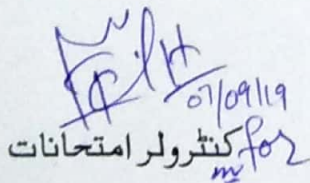 07/09/19
for کنٹرولر امتحانات